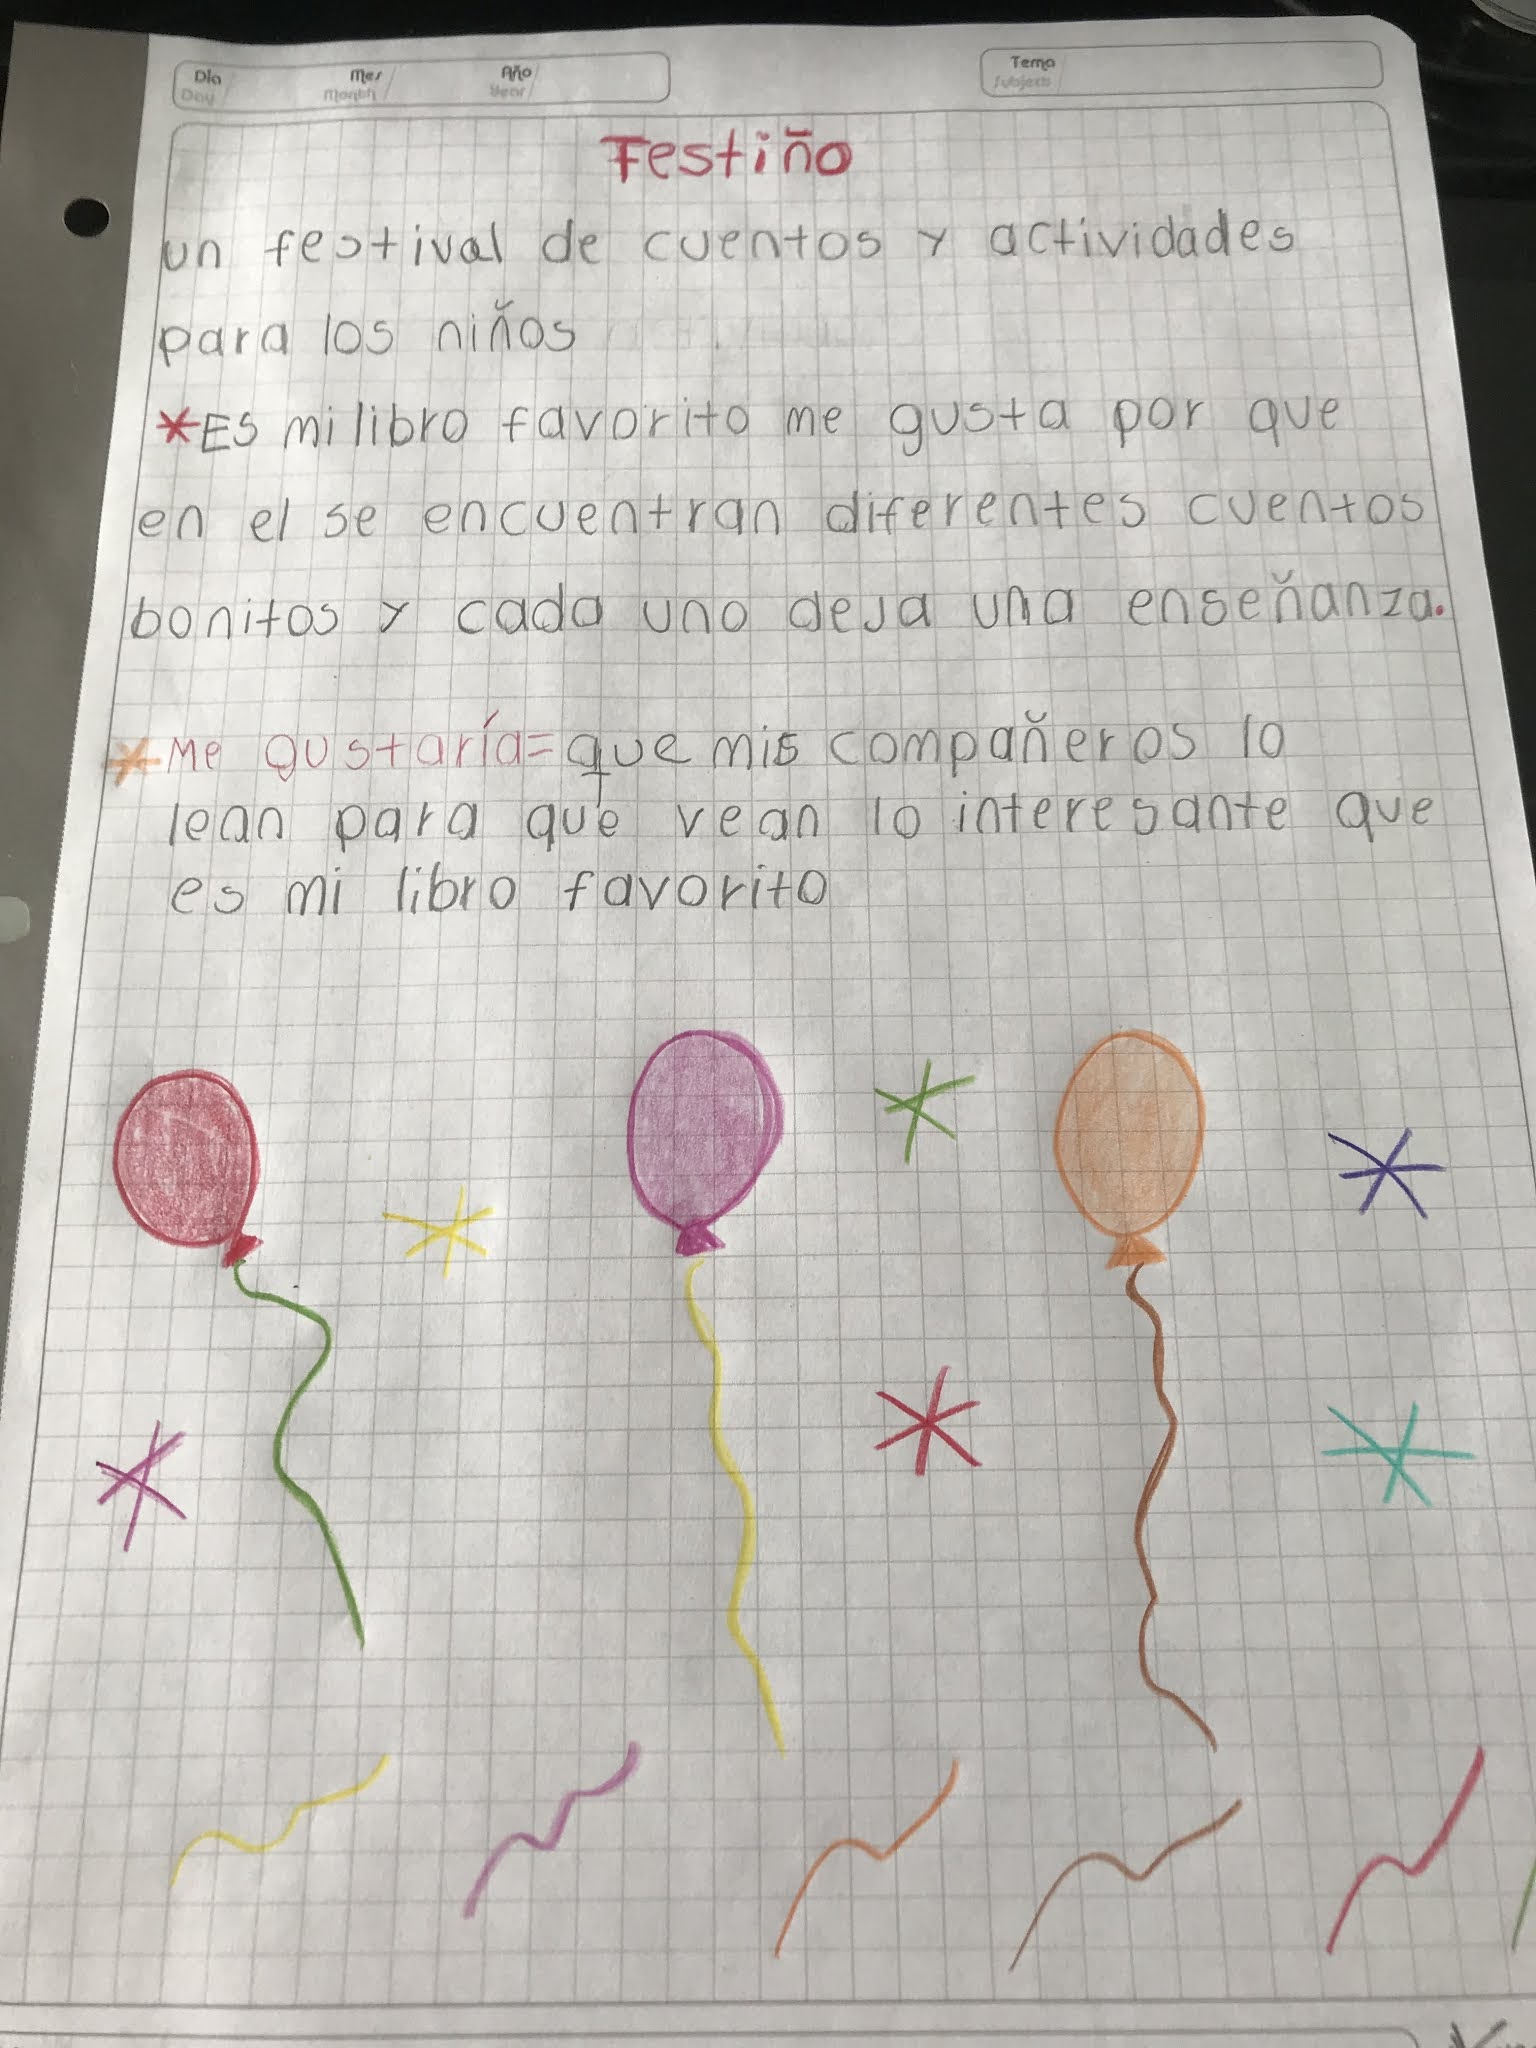 Día Mes Año Tema
Day Month Year Subject
Festiño
un festival de cuentos y actividades
para los niños
*Es mi libro favorito me gusta por que
en el se encuentran diferentes cuentos
bonitos y cada uno deja una enseñanza.
*Me gustaría=que mis compañeros lo
lean para que vean lo interesante que
es mi libro favorito